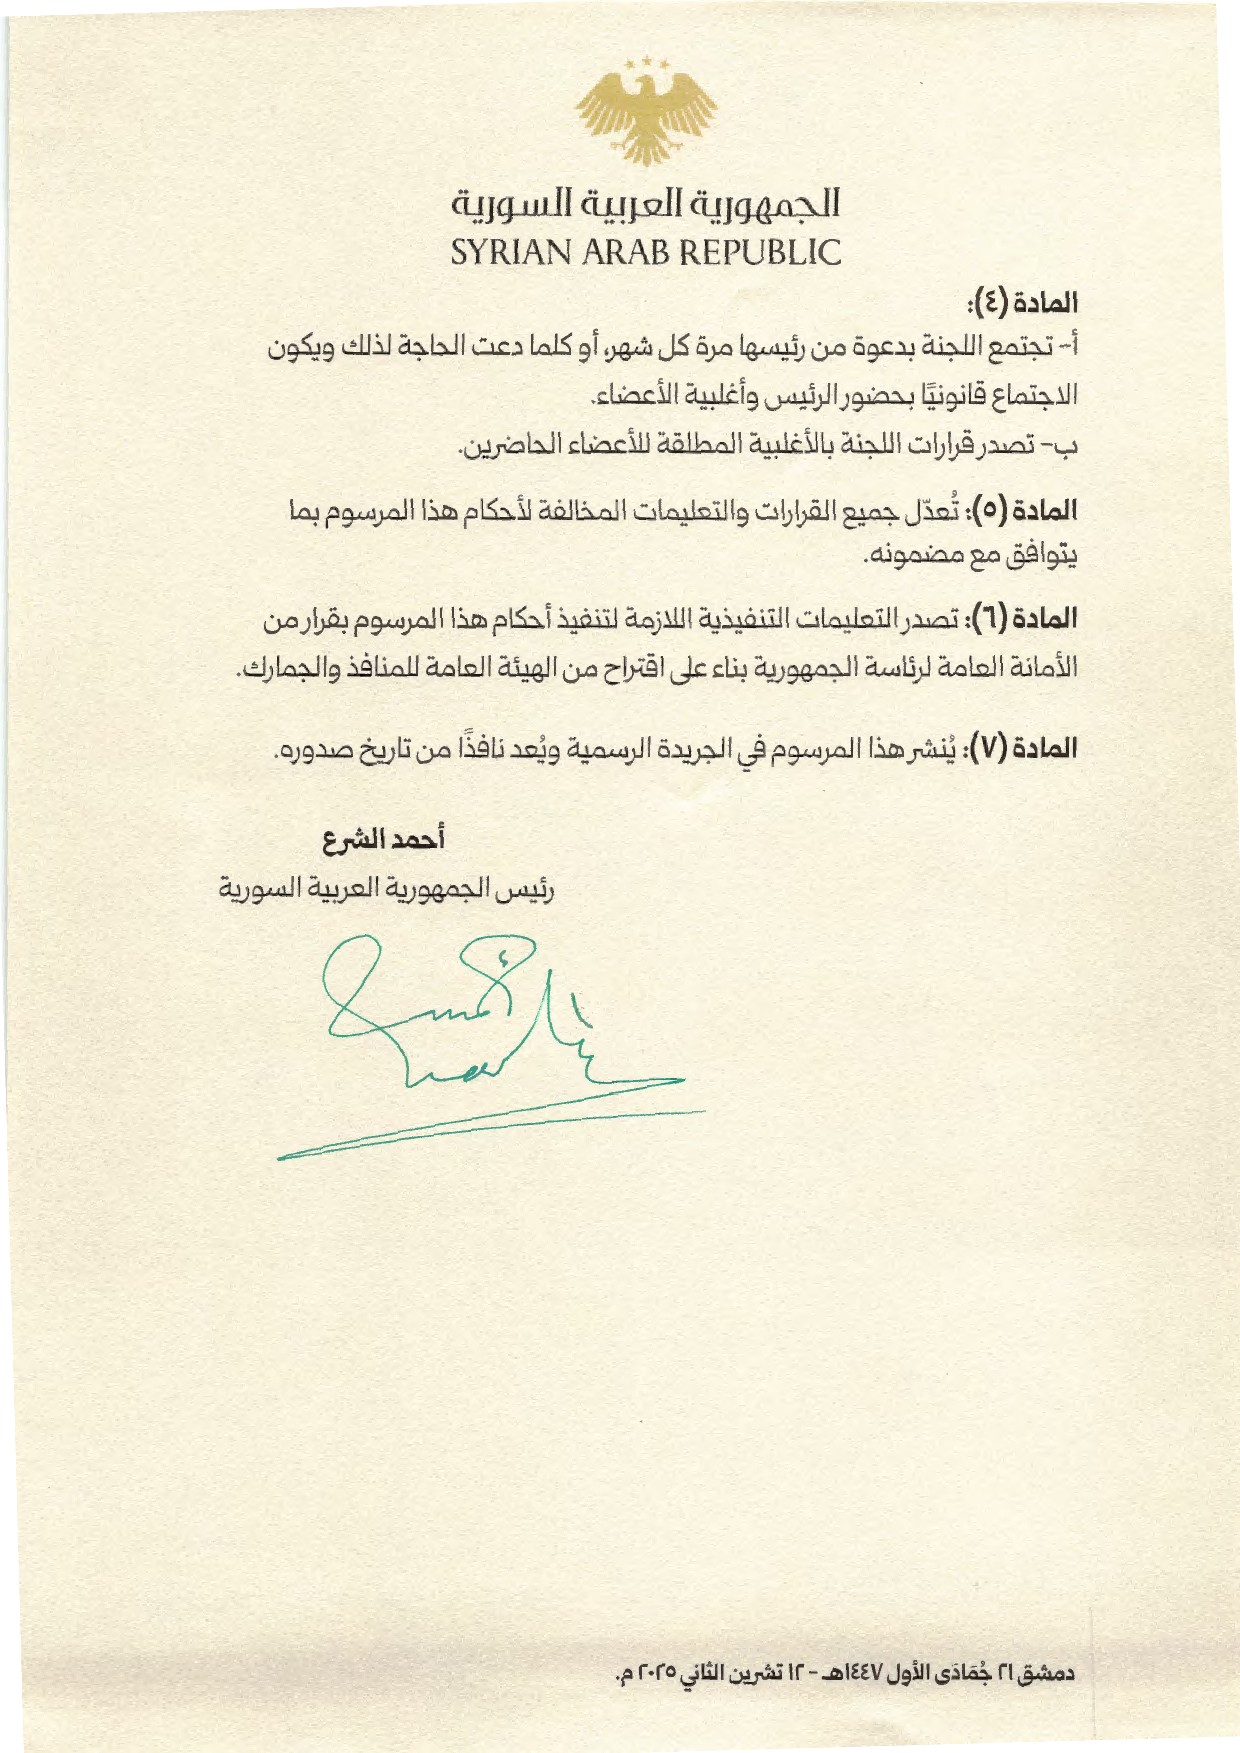 الجمهورية العربية السورية
SYRIAN ARAB REPUBLIC
المادة (٤):
أ- تجتمع اللجنة بدعوة من رئيسها مرة كل شهر، أو كلما دعت الحاجة لذلك ويكون
الاجتماع قانونيًا بحضور الرئيس وأغلبية الأعضاء.
ب- تصدر قرارات اللجنة بالأغلبية المطلقة للأعضاء الحاضرين.
المادة (٥): تُعدّل جميع القرارات والتعليمات المخالفة لأحكام هذا المرسوم بما
يتوافق مع مضمونه.
المادة (٦): تصدر التعليمات التنفيذية اللازمة لتنفيذ أحكام هذا المرسوم بقرار من
الأمانة العامة لرئاسة الجمهورية بناء على اقتراح من الهيئة العامة للمنافذ والجمارك.
المادة (٧): يُنشر هذا المرسوم في الجريدة الرسمية ويُعد نافذًا من تاريخ صدوره.
أحمد الشرع
رئيس الجمهورية العربية السورية
دمشق ٢١ جُمَادَى الأول ١٤٤٧هـ - ١٢ تشرين الثاني ٢٠٢٥ م.